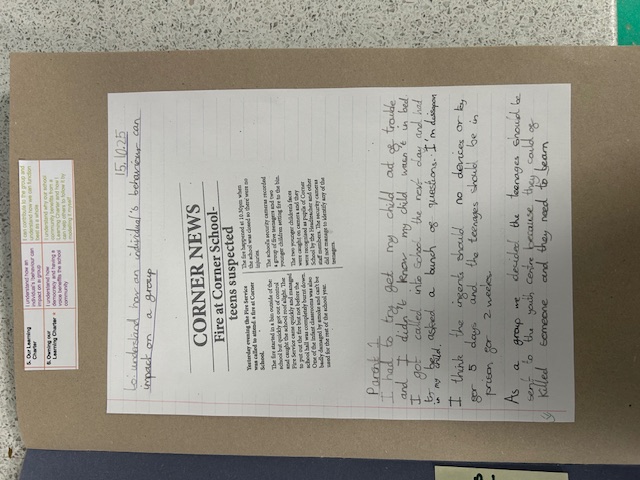 5. Our Learning Charter
I understand how an individual's behaviour can impact on a group
I can contribute to the group and understand how we can function best as a whole
6. Owning our Learning Charter
I understand how democracy and having a voice benefits the school community
15.10.25
to understand how an individual's behaviour can
impact on a group
CORNER NEWS
Fire at Corner School-
teens suspected
Yesterday evening the Fire Service
was called to attend a fire at Corner
School.
The fire started in a bin outside of the
school but quickly got out of control
and caught the school roof alight. The
Fire Service came quickly and managed
to put out the fire but not before the
school hall was completely burnt down.
One of the infant classrooms was also
badly damaged by smoke and can't be
used for the rest of the school year.
The fire happened at 10.50pm when
the school was closed so there were no
injuries.
The school's security cameras recorded
a group of five teenagers and two
younger children setting fire to the bin.
The two younger children's faces
were caught on camera and they
were recognised as pupils of Corner
School by the Headteacher and other
staff members. The security cameras
did not manage to identify any of the
teenagers.
Parent 1
I had to try get my child out of trouble
and I didn't know my child wasn't in bed.
I got called into School the next day and had
to be asked a bunch of questions. I'm
in my child.
I think the should no devices or by
for 5 days and the teenages should be in
prison for 2 weeks.
As a group we decided the teenages should be
sent to the youth Centre because they could of
killed someone and they need to learn